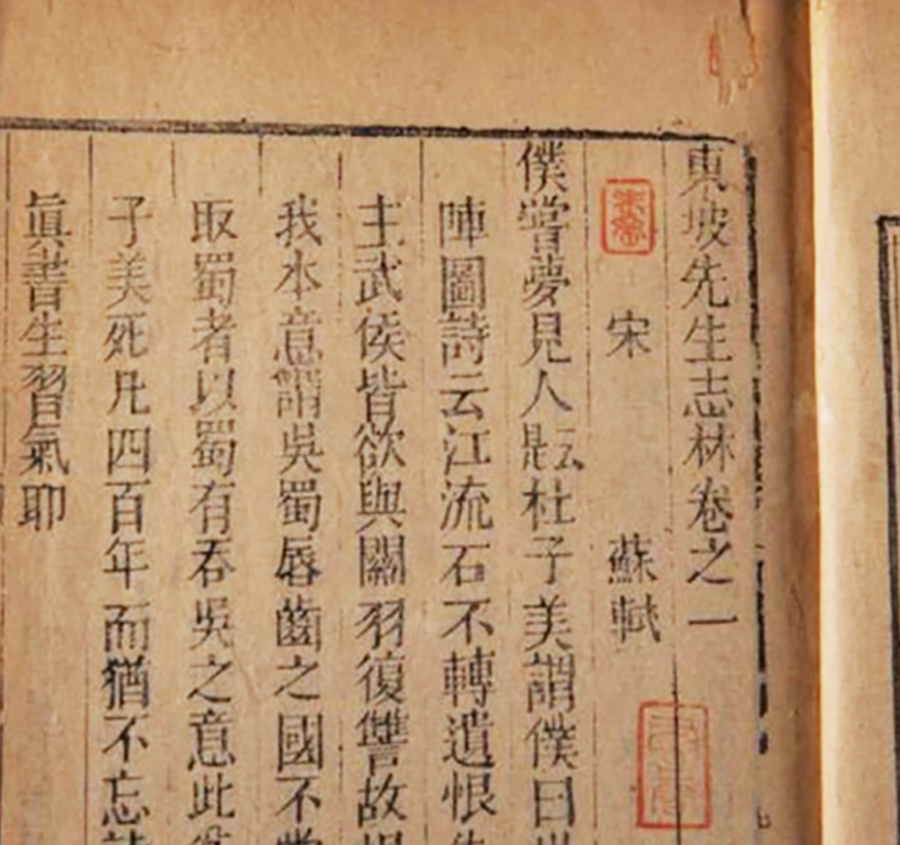 東坡先生志林卷之一
宋 蘇軾
僕嘗夢見人云杜子美謂僕曰世
陣圖詩云江流石不轉遺恨失
主武侯皆欲與關羽復讐故恨
我本意謂吳蜀唇齒之國不當
取蜀者以蜀有吞吳之意此
子美死凡四百年而猶不忘詩
眞書生習氣耶